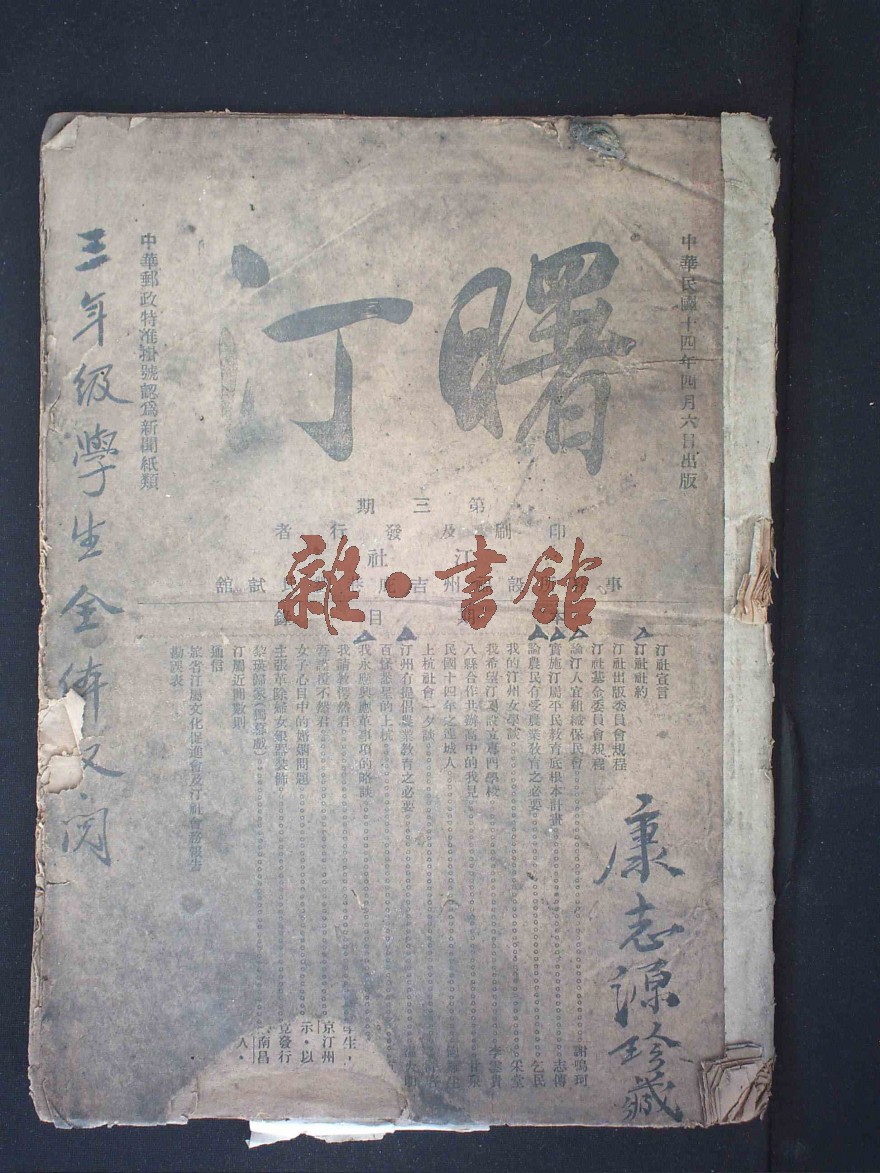 中華民國十四年四月六日出版
曙汀
中華郵政特准掛號認爲新聞紙類
三年級學生全体
康志源珍藏
第三期
印刷及發行者
汀社
雜·書館
汀社宣言
汀社社約
汀社出版委員會規程
汀社基金委員會規程
論汀人宜組織保民會 謝鳴珂
實施汀屬平民教育底根本計畫 志傳
論農民有受農業教育之必要 乞民
我的汀州女學談 采堂
我希望汀屬設立專門學校
八縣合作共辦高中的我見
民國十四年之連城人
上杭社會一夕談
汀州有提倡農業教育之必要
的上杭
我永應興應革事項的略談
我請教愕然君
女子心目中的婚姻問題
主張革除婦女銀器裝飾
汀屬近聞數則
通信
旅省汀屬文化促進會及汀社會務報告
勘誤表
學生，
京汀州
示。以
竟發行
南昌
人。